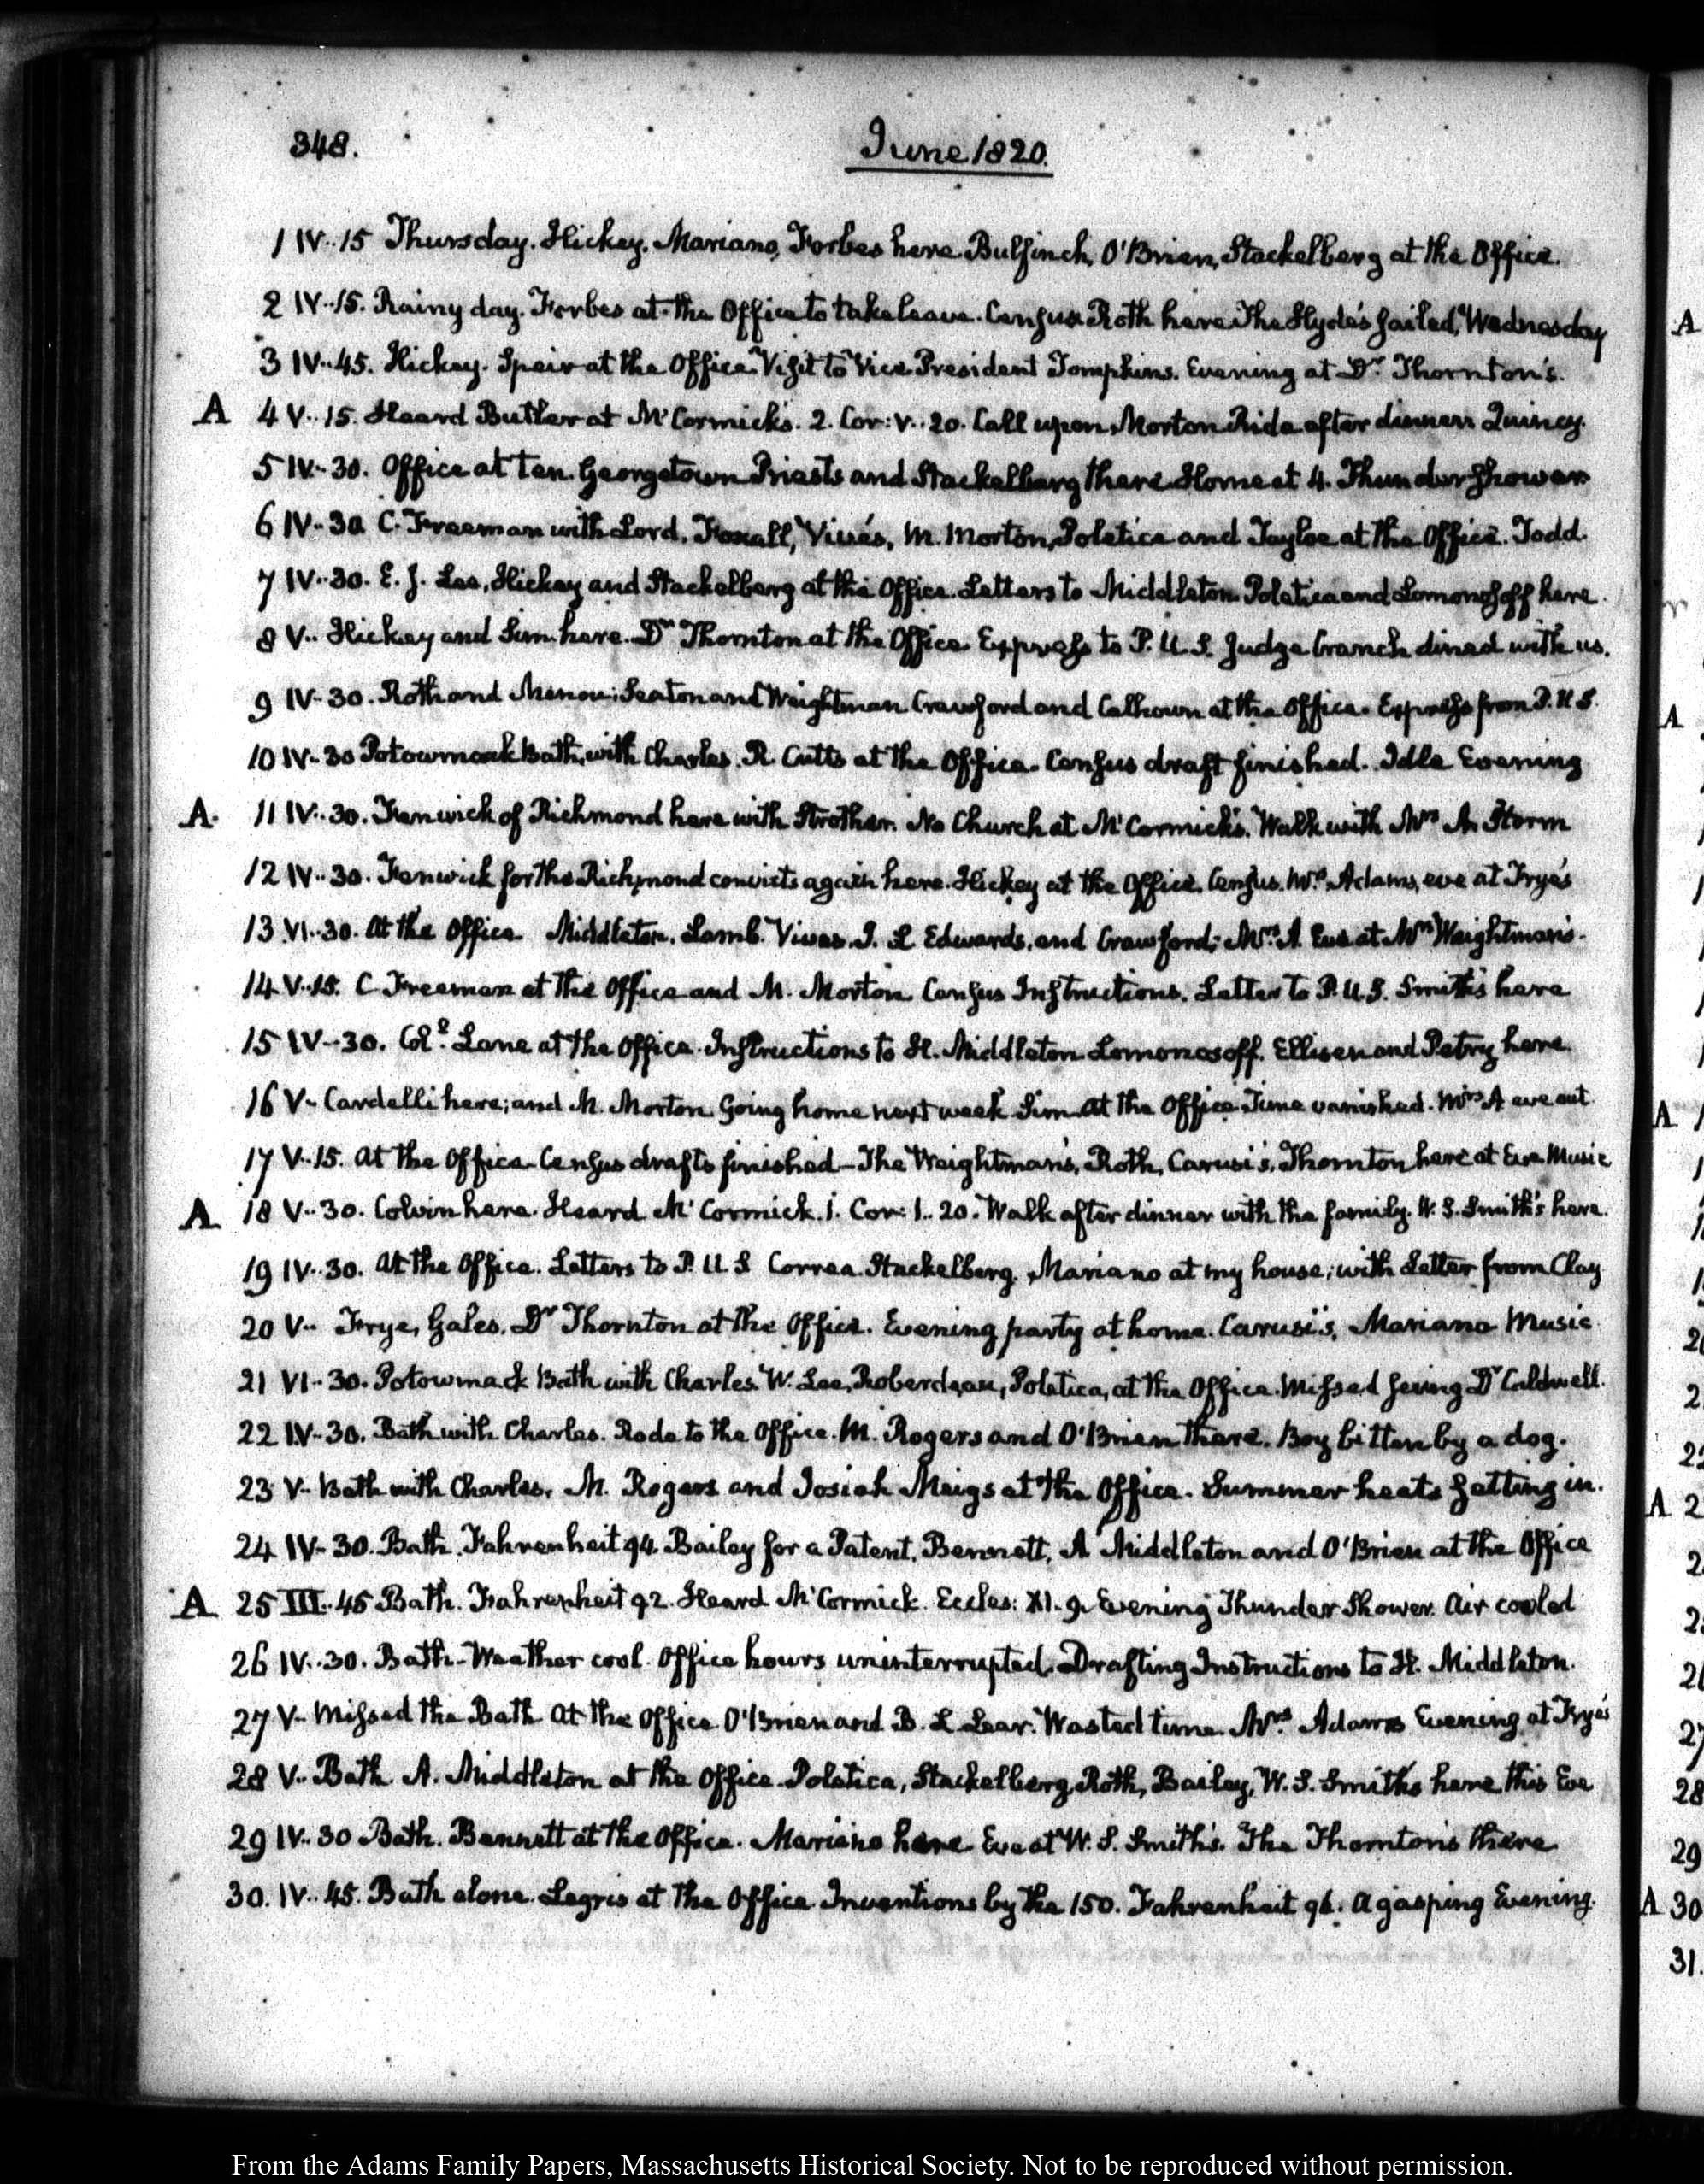 348.
June 1820.
1 IV..15 Thursday. Hickey. Mariano, Forbes here. Bulfinch, O'Brien, Stackelberg at the Office.
2 IV..15. Rainy day. Forbes at the Office to take leave. Census Roth here The Hyde's sailed, Wednesday
3 IV..45. Hickey. Speir at the Office. Visit to Vice President Tompkins. Evening at Dr. Thornton's.
A 4 V..15. Heard Butler at McCormick's. 2. Cor: V..20. Call upon Morton Ride after dinner Quincy.
5 IV..30. Office at ten. Georgetown Priests and Stackelberg there Home at 4. Thunder shower
6 IV..30 C. Freeman with Lord, Foxall, Vivés, M. Morton, Poletica and Tayloe at the Office. Todd.
7 IV..30. E. J. Lee, Hickey and Stackelberg at the Office. Letters to Middleton Poletica and Lomonosoff here.
8 V.. Hickey and Sim here. Dr Thornton at the Office. Express to P. U. S. Judge Cranch dined with us.
9 IV..30. Roth and Menou: Seaton and Weightman Crawford and Calhoun at the Office. Express from P. U S.
10 IV..30 Potowmack Bath, with Charles. R. Cutts at the Office. Census draft finished. Idle Evening
A. 11 IV..30. Fenwick of Richmond here with Strother. No Church at McCormick's. Walk with Mrs A. Storm
12 IV..30. Fenwick for the Richmond convicts again here. Hickey at the Office. Census. Mrs. Adams, eve at Frye's
13 VI..30. At the Office Middleton, Lamb. Vives. J. L Edwards, and Crawford; Mrs. A. Eve at Mrs Weightman's.
14 V..15. C Freeman at the Office and M. Morton Census Instructions. Letter to P. U. S. Smith's here
15 IV..30. Coll. Lane at the Office. Instructions to H. Middleton Lomonosoff, Ellisen and Petry here.
16 V.. Cardelli here; and M. Morton Going home next week Sim at the Office. Time vanished. Mrs A eve out.
17 V..15. At the Office Census drafts finished—The Weightman's, Roth, Carusi's, Thornton here at Eve Music
A 18 V..30. Colvin here. Heard McCormick. 1. Cor: 1..20. Walk after dinner with the family. W. S. Smith's here.
19 IV..30. At the Office. Letters to P. U S Correa. Stackelberg, Mariano at my house; with Letter from Clay
20 V.. Frye, Gales. Dr Thornton at the Office. Evening party at home. Carusi's, Mariano Music
21 VI..30. Potowmack Bath with Charles. W. Lee, Roberdeau, Poletica, at the Office. Missed seeing Dr Caldwell.
22 IV..30. Bath with Charles. Rode to the Office. M. Rogers and O'Brien there. Boy bitten by a dog.
23 V.. Bath with Charles. M. Rogers and Josiah Meigs at the Office. Summer heats setting in.
24 IV..30. Bath. Fahrenheit 94. Bailey for a Patent, Bennett, A. Middleton and O'Brien at the Office
A 25 III..45 Bath. Fahrenheit 92. Heard McCormick. Eccles: XI. 9. Evening Thunder Shower. Air cooled
26 IV..30. Bath—Weather cool. Office hours uninterrupted. Drafting Instructions to H. Middleton.
27 V.. Missed the Bath At the Office O'Brien and B. L Lear. Wasted time. Mrs. Adams Evening at Frye's
28 V.. Bath. A. Middleton at the Office. Poletica, Stackelberg, Roth, Bailey, W. S. Smiths here this Eve
29 IV..30 Bath. Bennett at the Office. Mariano here Eve at W. S. Smith's. The Thornton's there
30. IV..45. Bath alone. Legris at the Office Inventions by the 150. Fahrenheit 96. A gasping Evening.
From the Adams Family Papers, Massachusetts Historical Society. Not to be reproduced without permission.